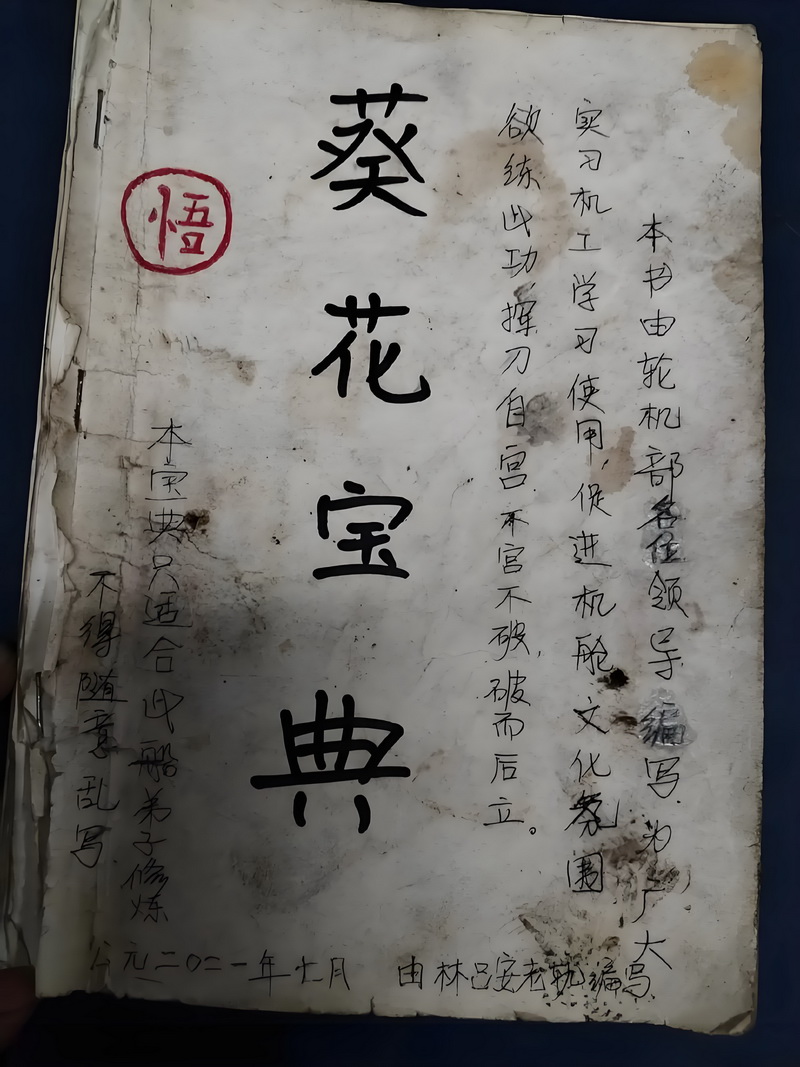 本书由轮机部各位领导编写.为广大
实习机工学习使用,促进机舱文化氛围
欲练此功,挥刀自宫.不宫不破,破而后立。
葵花宝典
悟
本宝典只适合此船弟子修炼
不得随意乱写.
公元二〇二一年七月 由林吕安老轨编写